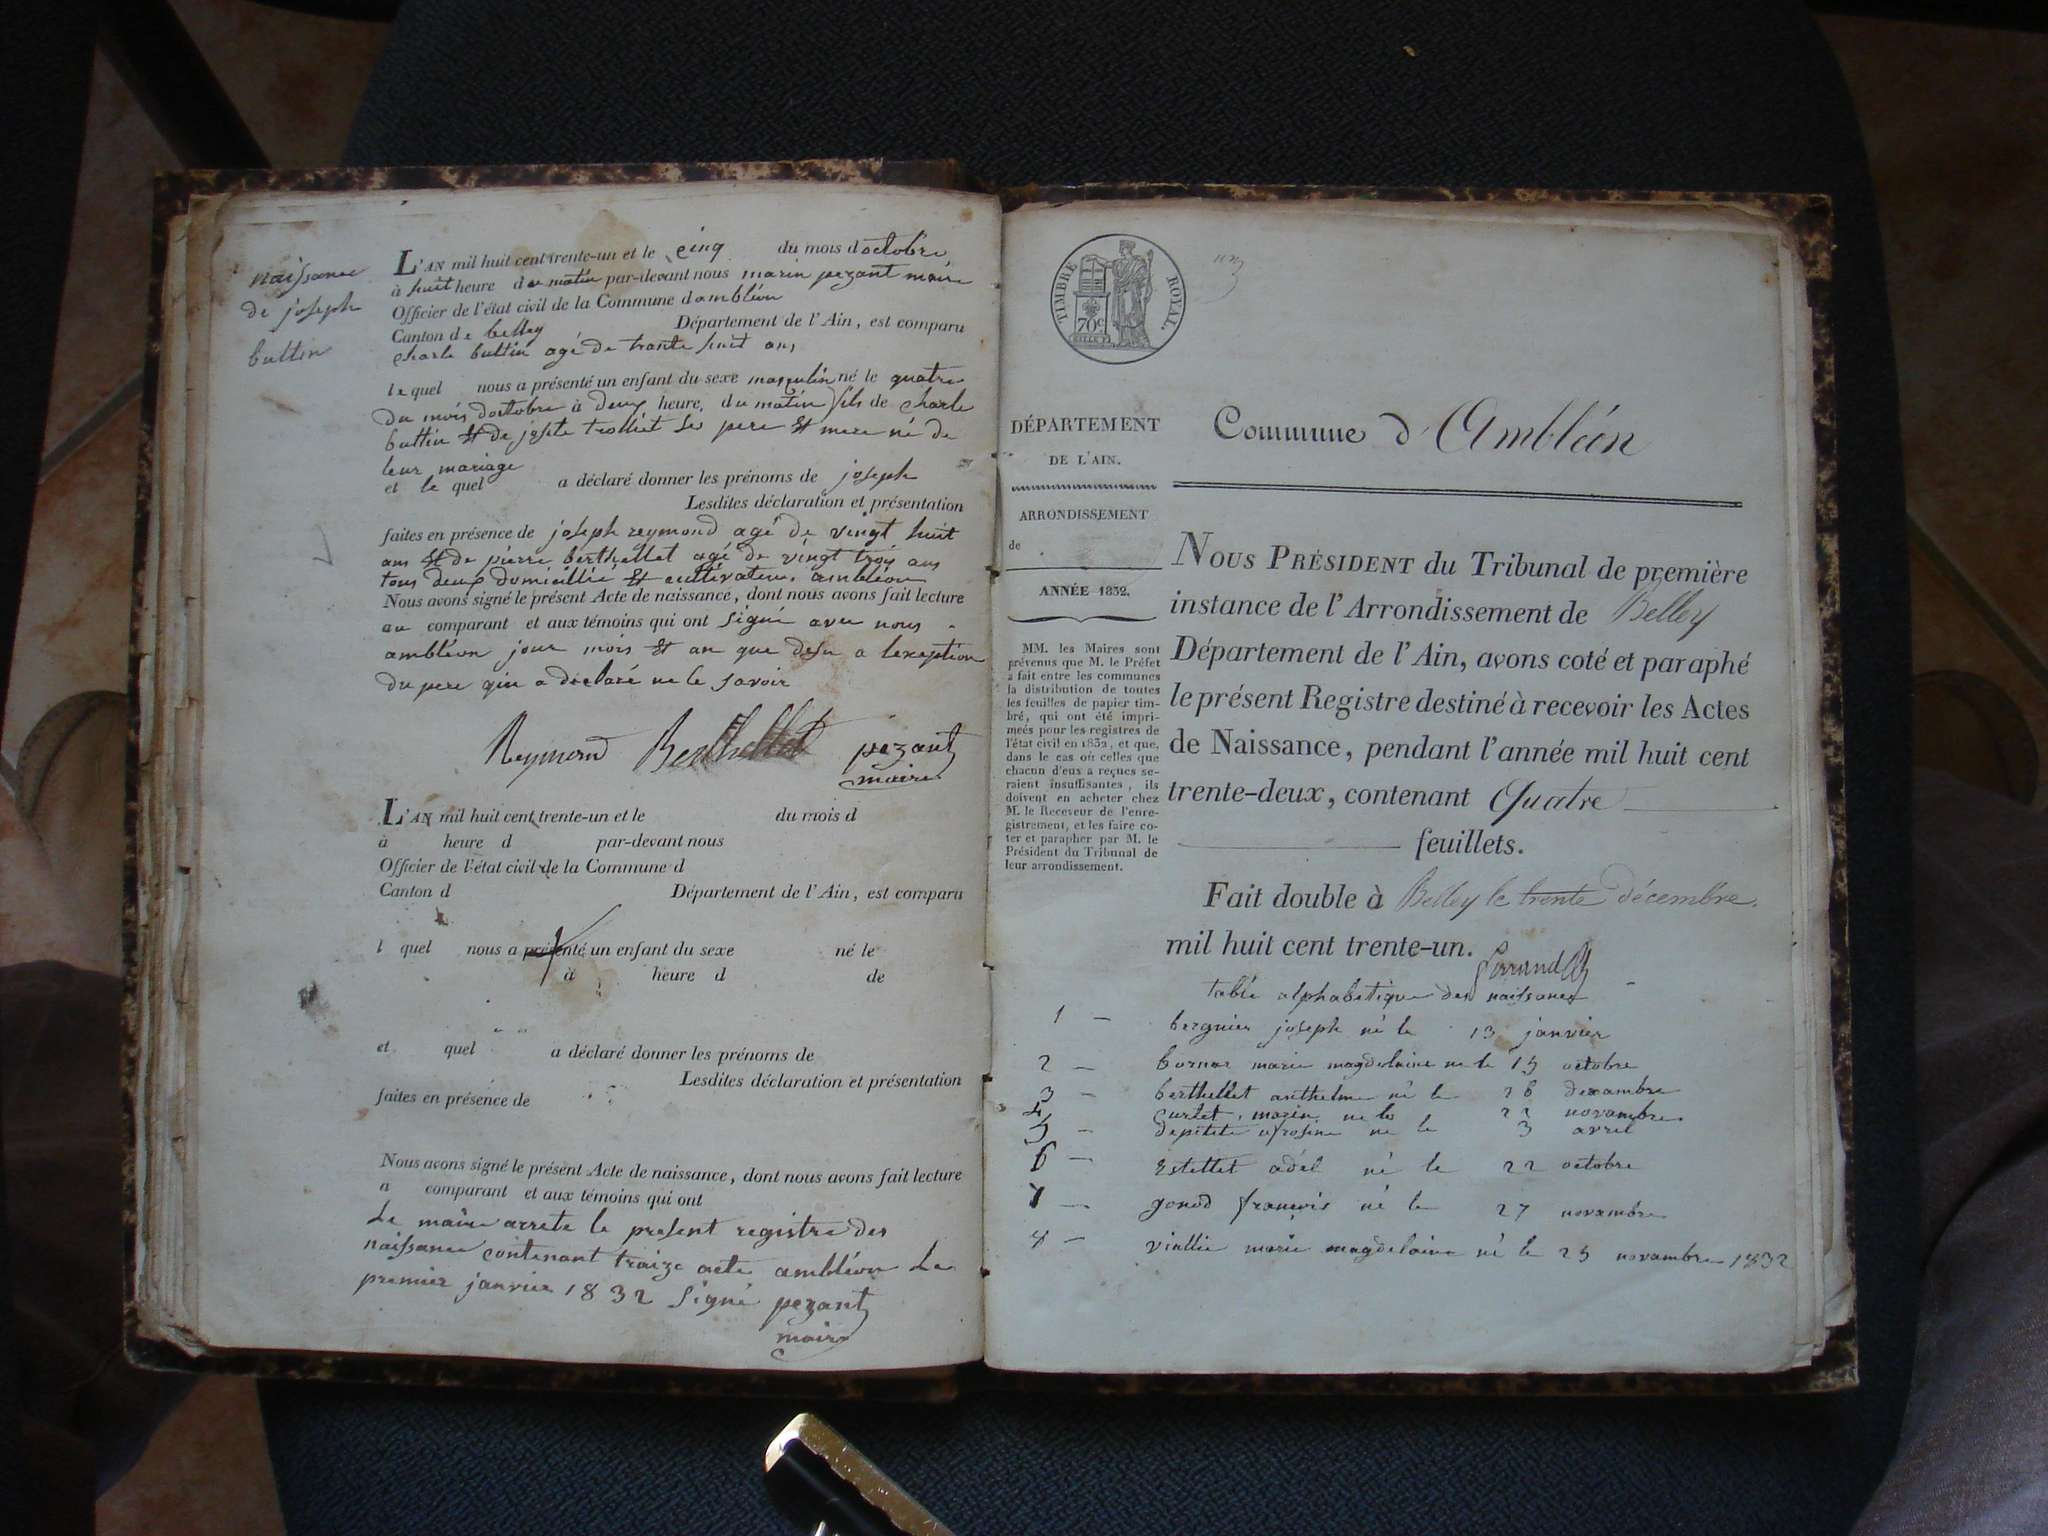 naissance
de joseph
buttin
L'AN mil huit cent trente-un et le cinq du mois doctobre
à huit heure du matin par-devant nous marin pezant maire
Officier de l'état civil de la Commune dambléon
Canton de belley Département de l'Ain, est comparu
charle buttin agé de trante huit ans
le quel nous a présenté un enfant du sexe masculin né le quatre
du mois doctobre à deux heure, du matin fils de charle
buttin et de josete trolliet ses pere et mere né de
leur mariage
et le quel a déclaré donner les prénoms de joseph
Lesdites déclaration et présentation
faites en présence de joseph reymond agé de vingt huit
ans et de pierre berthellet agé de vingt trois ans
tous deux domicillié et cultivateur ambléon
Nous avons signé le présent Acte de naissance, dont nous avons fait lecture
au comparant et aux témoins qui ont signé avec nous
ambléon jour mois et an que desu a lexeption
du pere qui a déclaré ne le savoir
Reymond Berthellet pezant
maire
L'AN mil huit cent trente-un et le du mois d
à heure d par-devant nous
Officier de l'état civil de la Commune d
Canton d Département de l'Ain, est comparu
l quel nous a présenté un enfant du sexe né le
à heure d de
et quel a déclaré donner les prénoms de
Lesdites déclaration et présentation
faites en présence de
Nous avons signé le présent Acte de naissance, dont nous avons fait lecture
a comparant et aux témoins qui ont
Le maire arrete le present registre des
naissance contenant traize acte ambléon Le
premier janvier 1832 signé pezant
maire
TIMBRE ROYAL.
70c
DÉPARTEMENT
DE L'AIN.
ARRONDISSEMENT
de
ANNÉE 1832.
MM. les Maires sont
prévenus que M. le Préfet
a fait entre les communes
la distribution de toutes
les feuilles de papier tim-
bré, qui ont été impri-
meés pour les registres de
l'état civil en 1832, et que,
dans le cas où celles que
chacun d'eux a reçues se-
raient insuffisantes, ils
doivent en acheter chez
M. le Receveur de l'enre-
gistrement, et les faire co-
ter et parapher par M. le
Président du Tribunal de
leur arrondissement.
Commune d'Ambléon
NOUS PRÉSIDENT du Tribunal de première
instance de l'Arrondissement de Belley
Département de l'Ain, avons coté et paraphé
le présent Registre destiné à recevoir les Actes
de Naissance, pendant l'année mil huit cent
trente-deux, contenant Quatre
feuillets.
Fait double à Belley le trente décembre.
mil huit cent trente-un.
table alphabetique des naissances
1 - bergnier joseph né le 13 janvier
2 - bornar marie magdelaine ne le 15 octobre
3 - berthellet anthelme né le 26 dexambre
4 curtet marin ne le novambre
5 - depitite ofrosine ne le 3 avril
6 - Estellet adél né le 22 octobre
7 - gonod francois né le 27 novambre
8 - viallie marie magdelaine né le 25 novambre 1832